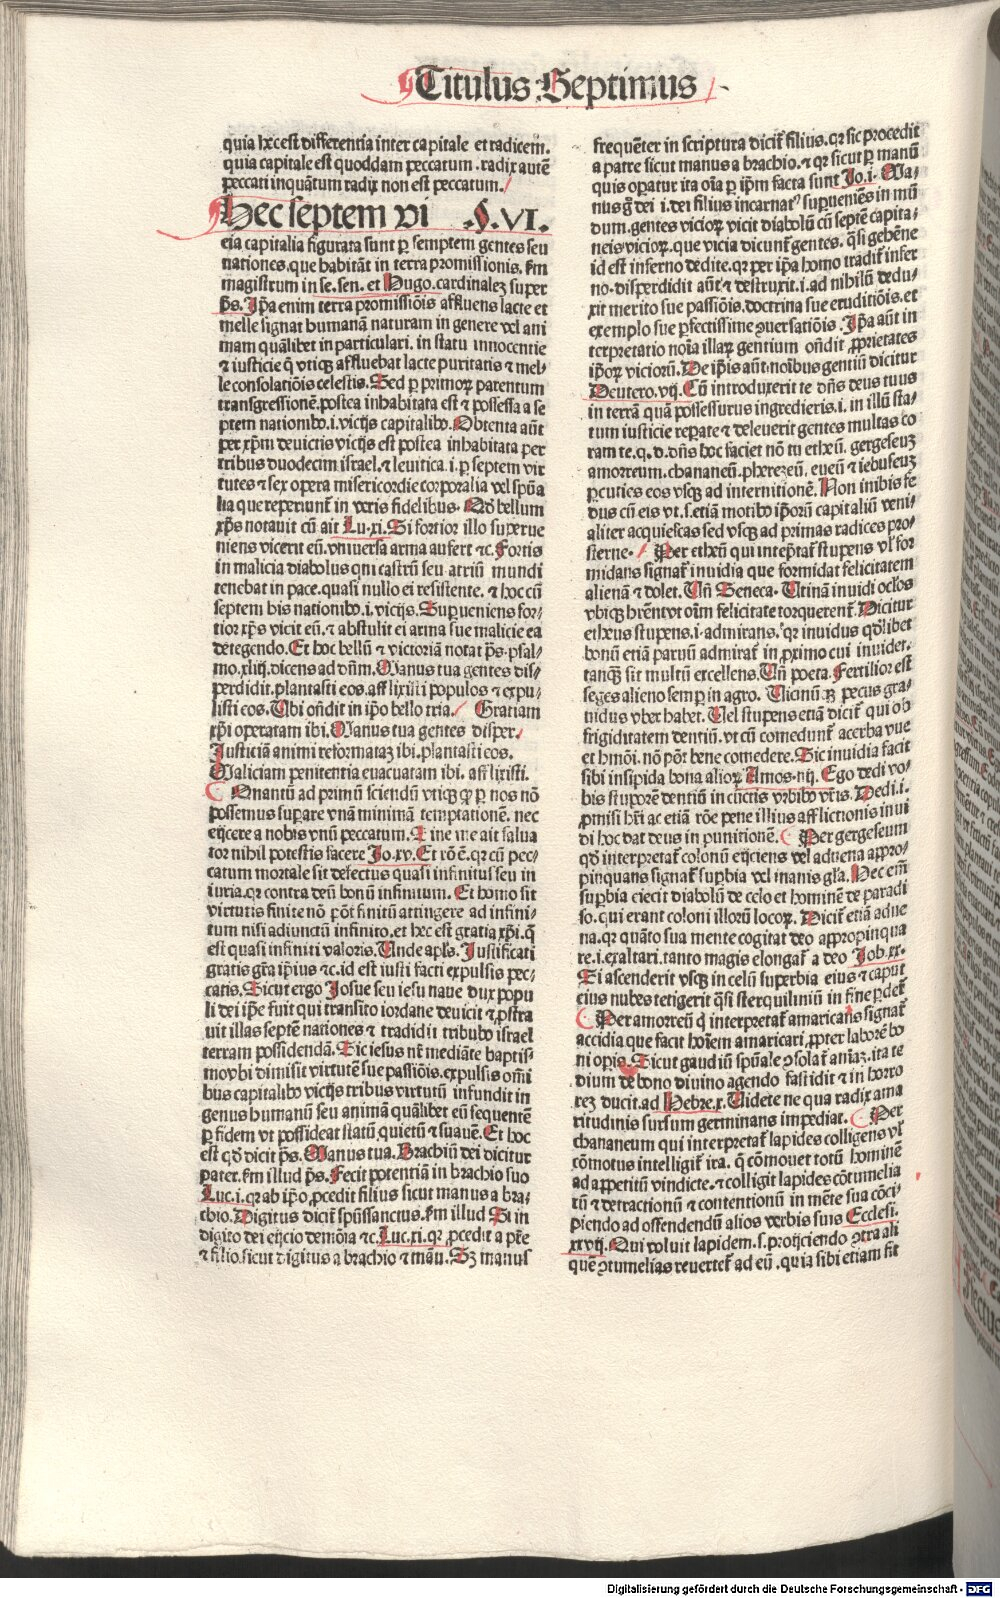 Titulus Septimus
quia hec est differentia inter capitale et radicem.
quia capitale est quoddam peccatum. radix autē
peccati inquātum radix non est peccatum.
Hec septem vi §.VI.
cia capitalia figurata sunt ꝑ semptem gentes seu
nationes. que habitāt in terra promissionis. ẜm
magistrum in se. sen. et Hugo. cardinalez super
ps. Ip̄a enim terra promissiōis affluens lacte et
melle signat humanā naturam in genere vel ani
mam quālibet in particulari. in statu innocentie
⁊ iusticie q̄ vtiqꝫ affluebat lacte puritatis ⁊ mel⸗
le consolatiōis celestis. Sed ꝑ primoꝝ parentum
transgressionē. postea inhabitata est ⁊ possessa a se
ptem nationibꝰ. i. vicijs capitalibꝰ. Obtenta aūt
per xp̄m deuictis vicijs est postea inhabitata per
tribus duodecim israel. ⁊ leuitica. i. ꝑ septem vir
tutes ⁊ sex opera misericordie corporalia vel sp̄ua
lia que reperiunt̄ in veris fidelibus. Qd̄ bellum
xp̄s notauit cū ait Lu. xi. Si fortior illo superue
niens vicerit eū. vniuersa arma aufert ⁊c. Fortis
in malicia diabolus qui castrū seu atriū mundi
tenebat in pace. quasi nullo ei resistente. ⁊ hoc cū
septem his nationibꝰ. i. vicijs. Superueniens for⸗
tior xp̄s vicit eū. ⁊ abstulit ei arma sue malicie ea
detegendo. Et hoc bellū ⁊ victoriā notat ps. psal⸗
mo. xliij. dicens ad dn̄m. Manus tua gentes dis⸗
perdidit. plantasti eos. afflixisti populos ⁊ expu⸗
listi eos. Ubi on̄dit in ip̄o bello tria. Gratiam
xp̄i operatam ibi. Manus tua gentes disper.
Justiciā animi reformataꝫ ibi. plantasti eos.
Maliciam penitentia euacuatam ibi. afflixisti.
Quantū ad primū sciendū vtiqꝫ ꝙ ꝑ nos nō
possemus suꝑare vnā minimā temptationē. nec
eijcere a nobis vnū peccatum. Sine me ait salua
tor nihil potestis facere Jo. xv. Et rō ē. qꝛ cū pec⸗
catum mortale sit defectus quasi infinitus seu in
iuria. qꝛ contra deū bonū infinitum. Et homo sit
virtutis finite nō pōt finitū attingere ad infini⸗
tum nisi adiunctū infinito. et hec est gratia xp̄i. q̄
est quasi infiniti valoris. Unde apl̄s. Justificati
gratis gr̄a ip̄ius ⁊c. id est iusti facti expulsis pec⸗
catis. Sicut ergo Josue seu iesu naue dux popu
li dei ip̄e fuit qui transito iordane deuicit ⁊ ꝓstra
uit illas septē nationes ⁊ tradidit tribubꝰ israel
terram possidendā. Sic iesus nr̄ mediāte baptis⸗
mo vbi dimisit virtutē sue passiōis. expulsis om̄i
bus capitalibꝰ vicijs tribus virtutū infundit in
genus humanū seu animā quālibet eū sequentē
ꝑ fidem vt possideat statū. quietū ⁊ suaue. Et hoc
est qd̄ dicit ps. Manus tua. Brachiū dei dicitur
pater. ẜm illud ps. Fecit potentiā in brachio suo
Luc. i. qꝛ ab ip̄o ꝓcedit filius sicut manus a bra⸗
chio. Digitus dicit̄ sp̄ussanctus. ẜm illud Si in
digito dei eijcio demōia ⁊c. Luc. xi. qꝛ ꝓcedit a pr̄e
⁊ filio. sicut digitus a brachio ⁊ manu. Sꝫ manus
frequēter in scriptura dicit̄ filius. qꝛ sic procedit
a patre sicut manus a brachio. ⁊ qꝛ sicut ꝑ manū
quis oꝑatur ita oīa ꝑ ip̄m facta sunt Jo. i. Ma⸗
nus g̊ dei. i. dei filius incarnatꝰ superueniēs in mū
dum. gentes vicioꝝ vicit diabolū cū septē capita⸗
neis vicioꝝ. que vicia dicunt̄ gentes. q̄si gehēne
id est inferno dedite. qꝛ per ip̄a homo tradit̄ infer
no. disperdidit aūt ⁊ destruxit. i. ad nihilū dedu⸗
xit merito sue passiōis. doctrina sue eruditiōis. et
exemplo sue ꝑfectissime ꝯuersatiōis. Ip̄a aūt in
terpretatio noīa illaꝝ gentium on̄dit ꝓprietates
ip̄oꝝ vicioꝝ. De ip̄is aūt noībus gentiū dicitur
Deutero. vij. Cū introduxerit te dn̄s deus tuus
in terrā quā possessurus ingredieris. i. in illū sta⸗
tum iusticie reꝑate ⁊ deleuerit gentes multas co
ram te. q. d. dn̄s hoc faciet nō tu etheū. gergeseuꝫ
amorreum. chananeū. pherezeū. eueū ⁊ iebuseuꝫ
ꝑcuties eos vsqꝫ ad internitionē. Non inibis fe
dus cū eis vt. s. etiā motibꝰ ip̄orū capitaliū veni⸗
aliter acquiescas sed vsqꝫ ad primas radices pro⸗
sterne. Per etheū qui interp̄tat̄ stupens vl̄ for
midans signat̄ inuidia que formidat felicitatem
alienā ⁊ dolet. Un̄ Seneca. Utinā inuidi oclōs
vbiqꝫ hrēnt vt oīm felicitate torquerent̄. Dicitur
etheus stupens. i. admirans. qꝛ inuidus qd̄libet
bonū etiā paruū admirat̄ in ꝓximo cui inuidet.
tanqꝫ sit multū excellens. Un̄ poeta. Fertilior est
seges alieno semꝑ in agro. Uicinūqꝫ pecus gra⸗
nidus vber habet. Uel stupens etiā dicit̄ qui ob
frigiditatem dentiū. vt cū comedunt̄ acerba vue
et hmōi. nō pn̄t bene comedere. Sic inuidia facit
sibi insipida bona alioꝝ Amos. iiij. Ego dedi vo⸗
bis stuporē dentiū in cūctis vrbibꝰ vr̄is. Dedi. i.
ꝑmisi hr̄i ac etiā rōe pene illius afflictionis inui
di hoc dat deus in punitionē. Per gergeseum
qd̄ interpretat̄ colonū eijciens vel aduena appro⸗
pinquans signat̄ suꝑbia vel inanis gl̄a. Hec em̄
suꝑbia eiecit diabolū de celo et hominē de paradi
so. qui erant coloni illorū locoꝝ. Dicit̄ etiā adue
na. qꝛ quāto sua mente cogitat deo appropinqua
re. i. exaltari. tanto magis elongat̄ a deo Job. xx.
Si ascenderit vsqꝫ in celū superbia eius ⁊ caput
eius nubes tetigerit q̄si sterquiliniū in fine ꝑdet̄
Per amorreū q̄ interpretat̄ amaricās signat̄
accidia que facit hoīem amaricari. ꝓpter laborē bo
ni opis. Sicut gaudiū sp̄uale ꝯsolat̄ aīaꝫ. ita te
dium de bono diuino agendo fastidit ⁊ in horro
reꝫ ducit. ad Hebre. x. Uidete ne qua radix ama
ritudinis sursum germinans impediat. Per
chananeum qui interpretat̄ lapides colligens vl̄
cōmotus intelligit̄ ira. q̄ cōmouet totū hominē
ad appetitū vindicte. ⁊ colligit lapides cōtumelia
rū ⁊ detractionū ⁊ contentionū in mēte sua cōci⸗
piendo ad offendendū alios verbis suis Ecclesi.
xxvij. Qui voluit lapidem. s. proijciendo ꝯtra ali
quē ꝯtumelias reuertet̄ ad eū. quia sibi etiam fit
Digitalisierung gefördert durch die Deutsche Forschungsgemeinschaft - DFG